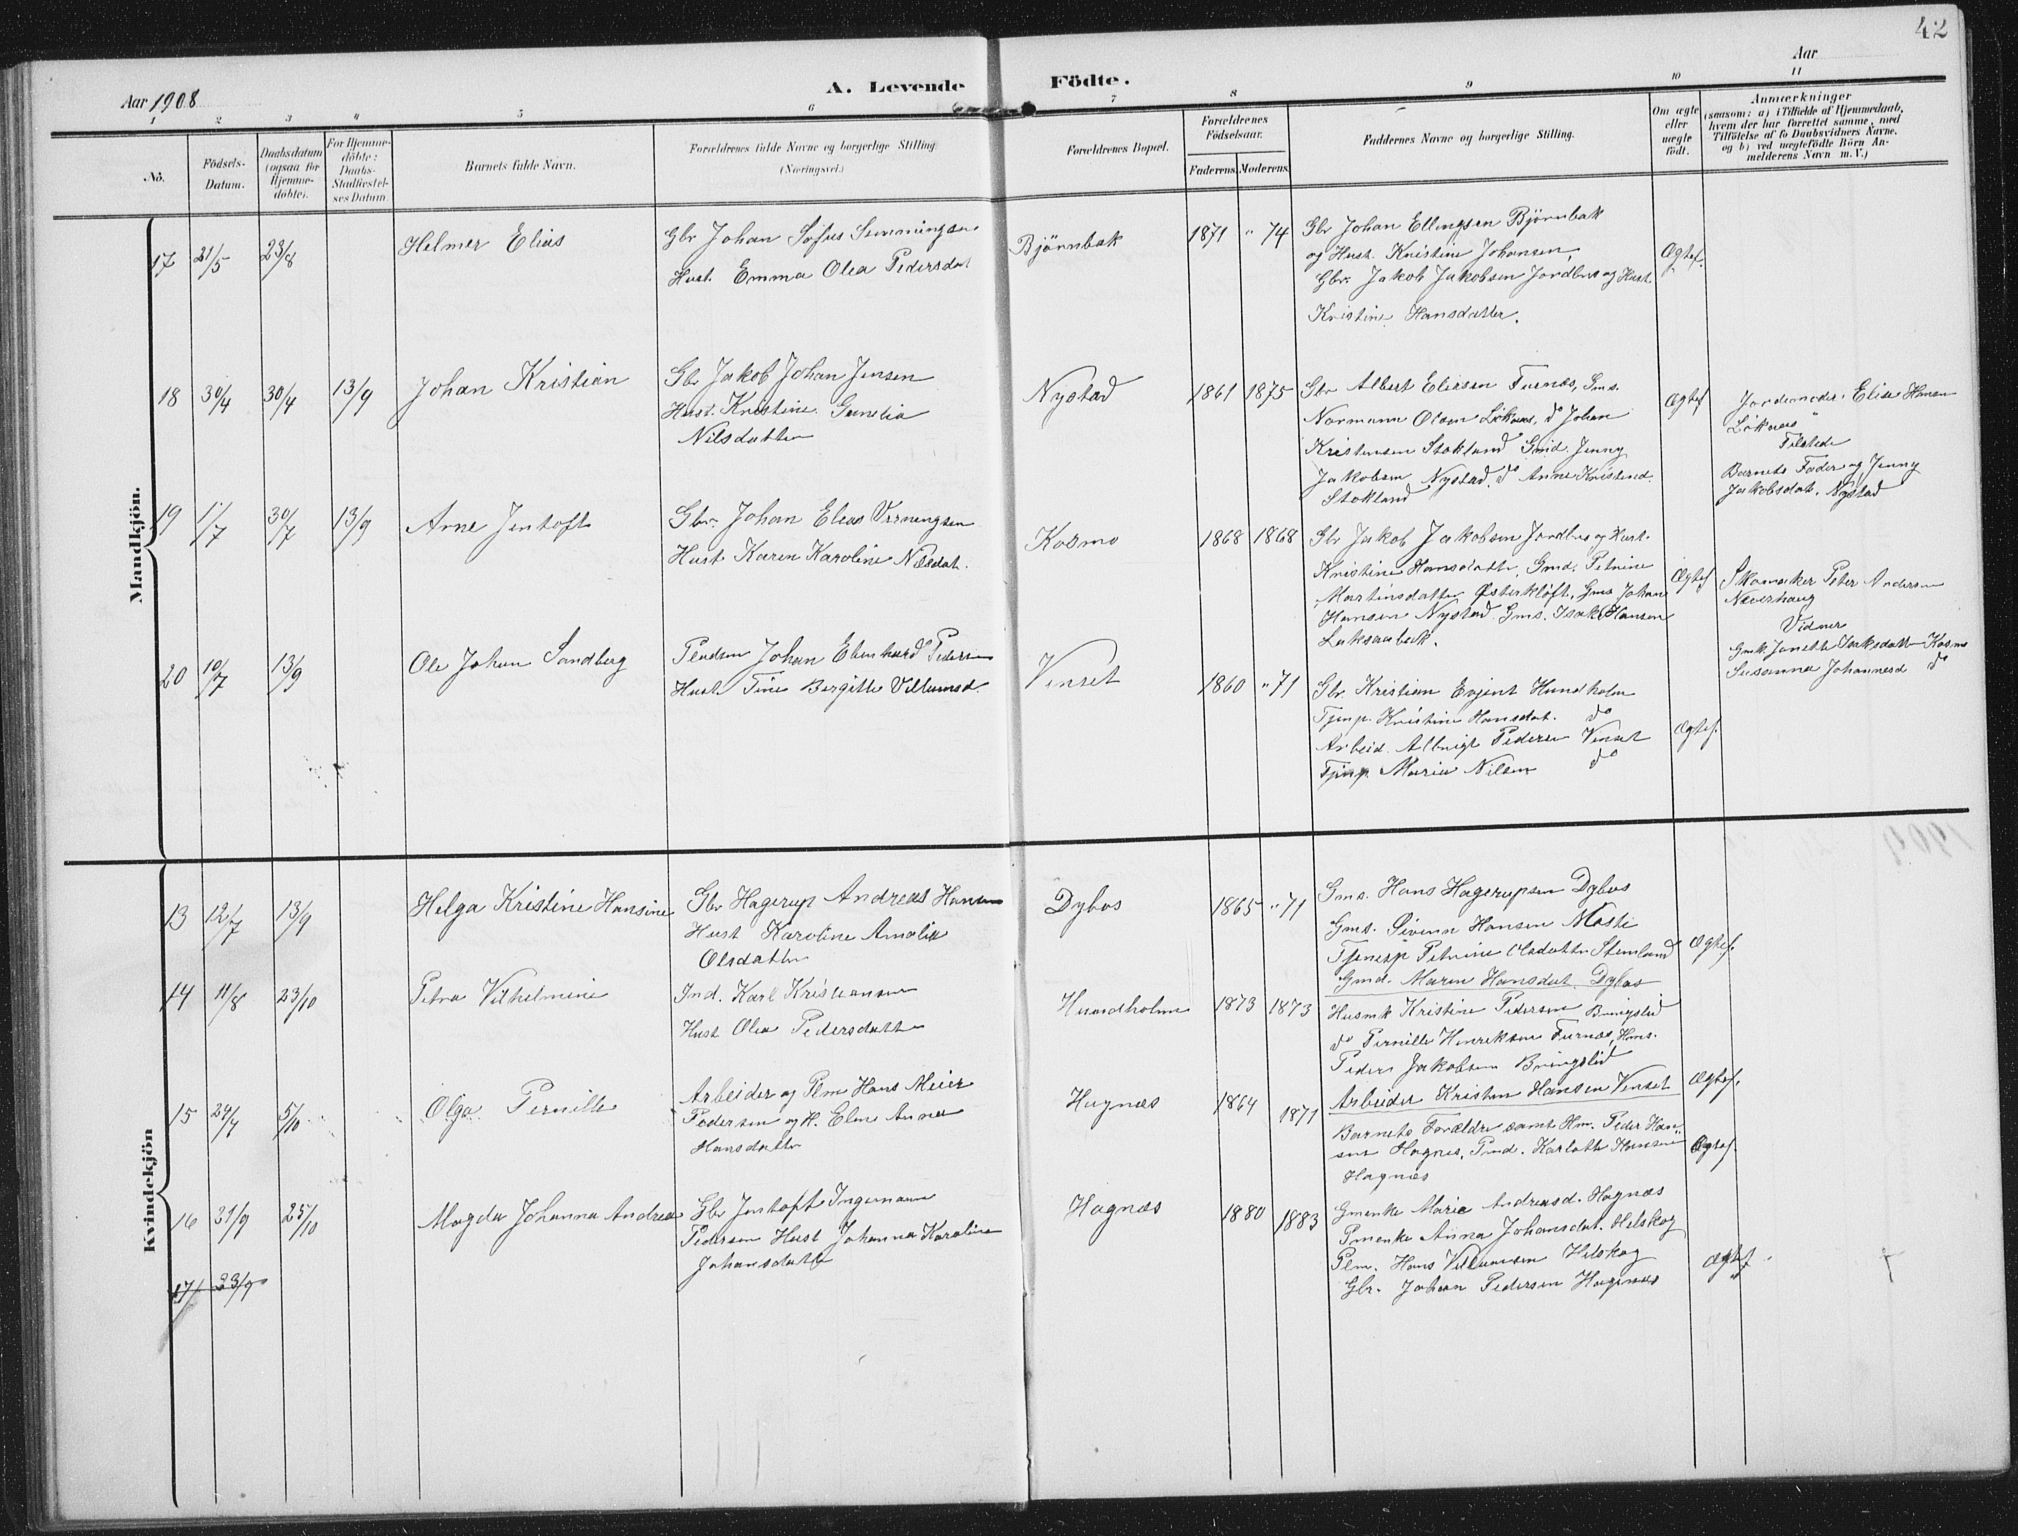 42
Aar 1908
A. Levende Födte.
Aar
1 2 3 4 5 6 7 8 9 10 11
No.
Födsels-Datum.
Daabsdatum (ogsaa for Hjemmedöbte).
For Hjemmedöbte: Daabs-Stadfæstelses Datum.
Barnets fulde Navn.
Forældrenes fulde Navne og borgerlige Stilling. (Næringsvei.)
Forældrenes Bopæl.
Forældrenes Födselsaar.
Faderens. Moderens.
Faddernes Navne og borgerlige Stilling.
Om ægte eller uægte födt.
Anmærkninger
(saasom: a) i Tilfælde af Hjemmedaab, hvem der har forrettet samme, med Tilföielse af to Daabsvidners Navne. og b) ved uægtefödte Börn Anmelderens Navn m. V.)
Mandkjön.
17 21/5 23/8 Helmer Elias
Gbr Johan Sofus
Hust. Emma Olea Pedersdat
Bjørnbak 1871 " 74
Gbr Johan Ellingsen Bjørnbak
og Hust. Kristine Johansen,
Gbr. Jakob Jakobsen Jordbru og Hust.
Kristine Hansdatter.
Ægtef.
18 30/4 30/4 13/9 Johan Kristian
Gbr Jakob Johan Jensen
Hust. Kristine Gunelia
Nilsdatter
Nystad 1861 1875
Gbr Albert Eliesen Furnæs, Gms.
Normann Olsen Løknæs, do Johan
Kristensen Stokland Gmd. Jenny
Jakobsen Nystad. do Anne Kristensd.
Stokland
Ægtef
Jordemoder Elise Hansen
Løknæs
Tilstede
Barnets Fader og Jenny
Jakobsdat. Nystad
19 1/7 30/7 13/9 Arne Jentoft
Gbr. Johan Elias
Hust Karen Karoline Nilsdat.
Kosmo 1868 1868
Gbr Jakob Jakobsen Jordbru og Hust.
Kristine Hansdatter, Gmd. Petrine
Martinsdatter Østerkløft, Gms Johan
Hansen Nystad. Gms. Isak Hansen
Laksaabak.
Ægtef
Skomaker Peter Andersen
Næverhaug
Vidner
Gmk. Janette Isaksdatter Kosmo
Susanna Johannesd do
20 10/7 13/9 Ole Johan Sandberg
Pladsm Johan Eberhard Pedersen
Hust Tine Bergitte Villumsd.
Venset 1860 " 71
Gbr. Kristian Evjent Hundholm
Tjnp. Kristine Hansdat. do
Arbeid. Albrigt Pedersen Venset
Tjnp Maria Nilsen do
Ægtef.
Kvindekjön
13 12/7 13/9 Helga Kristine Hansine
Gbr Hagerup Andreas Hansen
Hust Karoline Amalie
Olsdatter
Dybos 1865 " 71
Gms. Hans Hagerupsen Dybos
Gms. Sivenn Hansen Moste
Tjenesp Petrine Olsdatter Stemland
Gmd. Maren Hansdat. Dybos
Ægtef.
14 11/8 23/10 Petra Vilhelmine
Ind. Karl Kristiansen
Hust Olea Pedersdatter
Hundholmen 1873 1873
Husmk Kristine Pedersen Bringslid
do Pernille Henriksen Furnæs, Hms.
Peder Jakobsen Bringslid
Arbeider Kristen Hansen Venset
Ægtef.
15 24/7 5/10 Olga Pernille
Arbeider og Plm Hans Meier
Pedersen og H. Elen Anna
Hansdatter
Hagnæs 1864 1871
Barnets Forældre samt Hm. Peder Han-
sen Hagnes, Pmd. Karlotte Hansen
Hagnæs
Ægtef.
16 21/9 25/10 Magda Johanna Andrea
Gbr Jentoft Ingemann
Pedersen Hust Johanna Karoline
Johansdatter
Hagnæs 1880 1883
Gmenke Marie Andreasd. Hagnæs
Pmenke Anna Johansdat. Hilskog
Plm. Hans Villumsen Hilskog
Gbr. Johan Pedersen Hagnæs
Ægtef
17/ 23/9